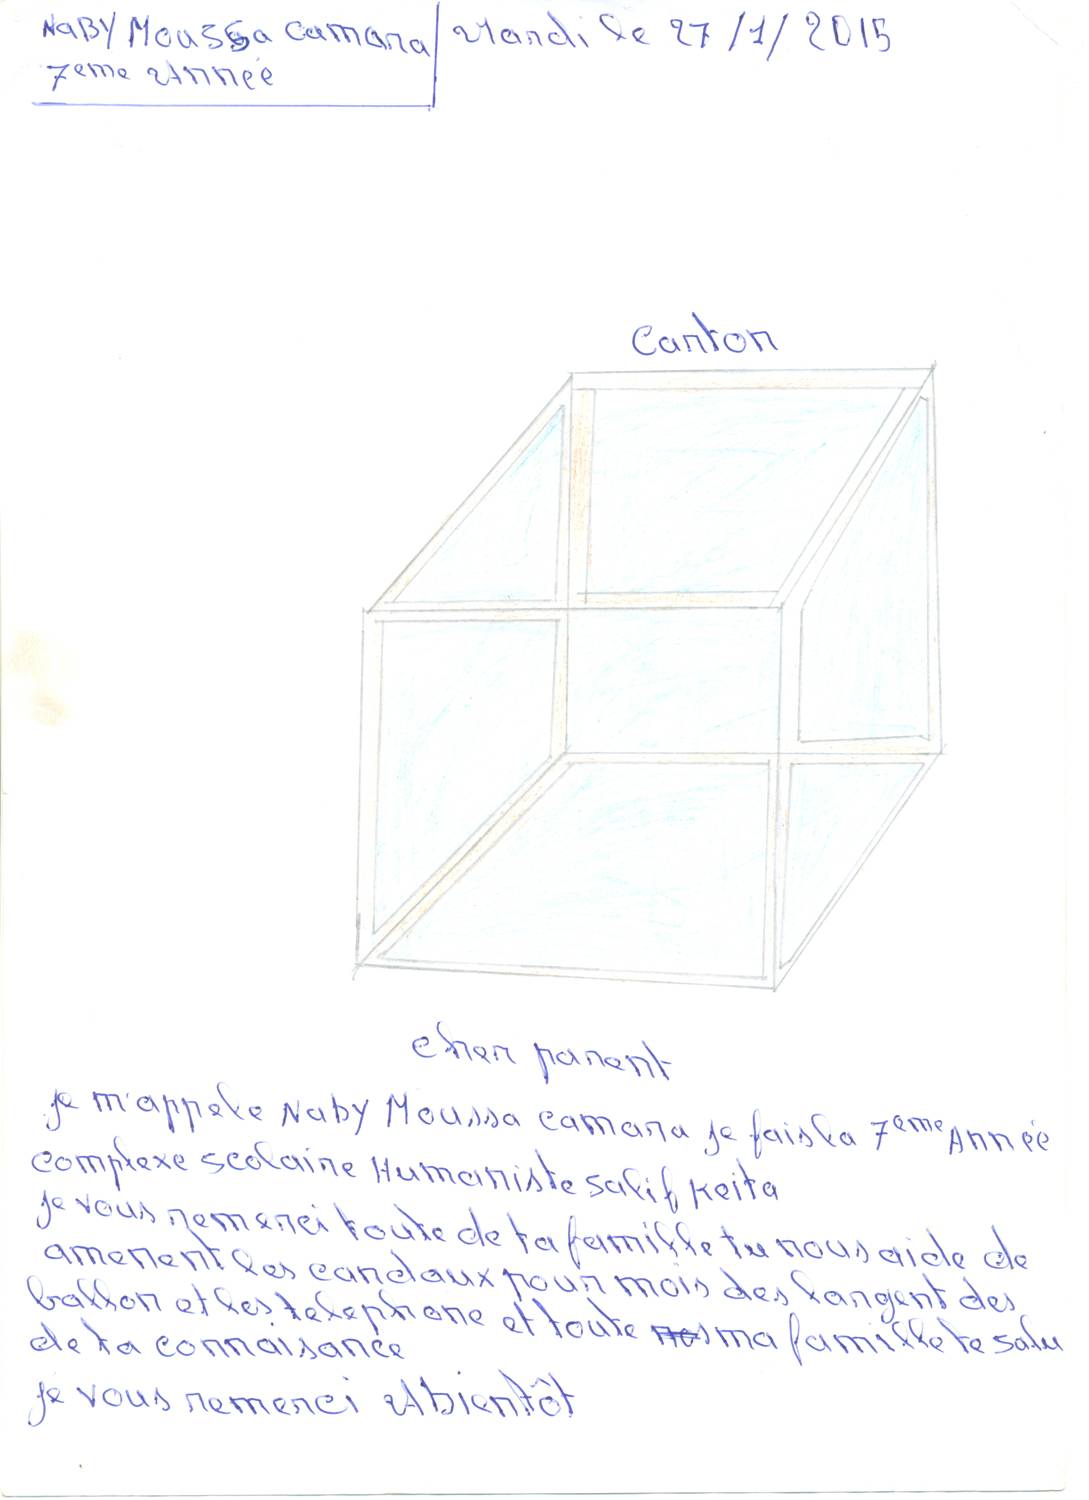 NaBY Moussa Camara Mardi le 27/1/2015
7eme Année
Carton
cher parent
je m'appele NaBY Moussa camara je fais la 7eme Année
complexe scolaire Humaniste salif Keita
je vous remerci toute de ta famille tu nous aide de
amenent les cardaux pour mois des l'argent des
ballon et les telephone et toute ma famille te salu
de ta connaisance
je vous remerci Abientôt